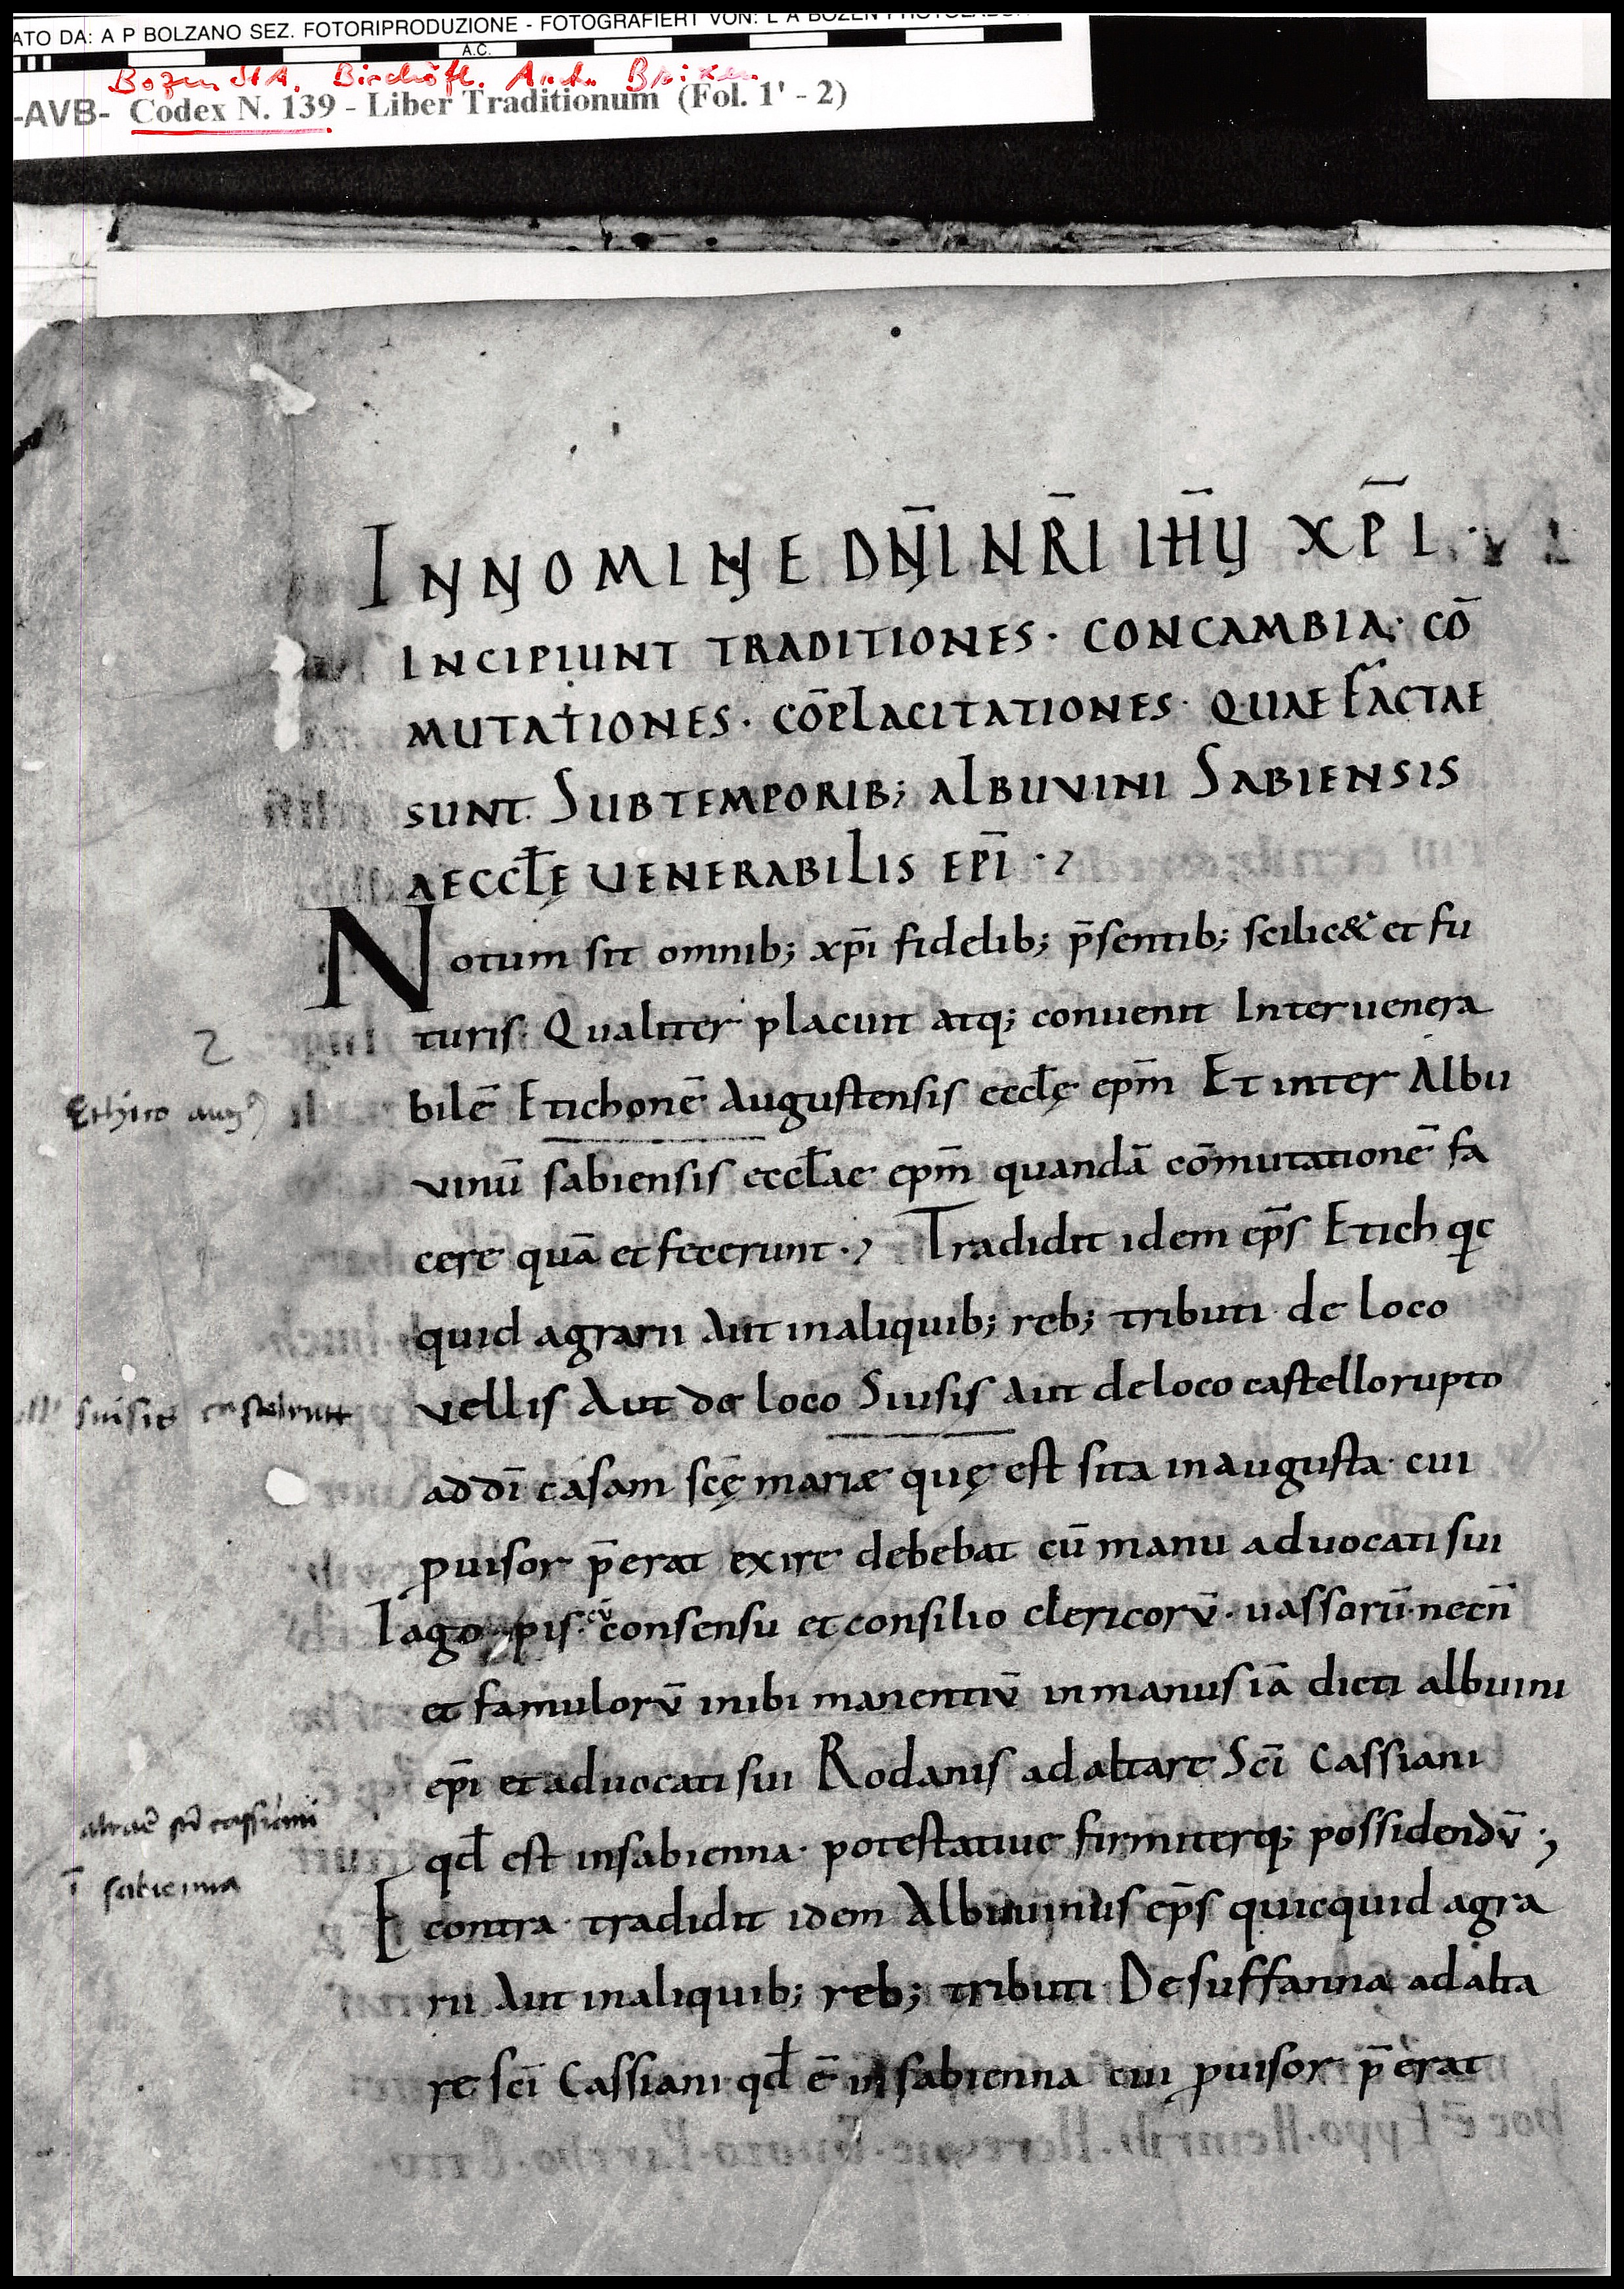 ATO DA: A P BOLZANO SEZ. FOTORIPRODUZIONE - FOTOGRAFIERT VON: L A BOZEN
A.C.
Bozen StA. Bischöfl. Arch. Brixen
-AVB- Codex N. 139 - Liber Traditionum (Fol. 1' - 2)
INNOMINE DN̄I NR̄I IH̄U XP̄I
INCIPIUNT TRADITIONES · CONCAMBIA · CŌ
MUTATIONES · CŌPLACITATIONES · QUAE FACTAE
SUNT · SUB TEMPORIB; ALBUUINI SABIENSIS
AECCL̄Ę UENERABILIS EP̄I ·
Notum sit omnib; xp̄i fidelib; p̄sentib; scilic& et fu
turis. Qualiter placuit atq; conuenit Inter uenera
2
bilē Etichonē Augustensis eccl̄ę ep̄m Et inter Albu
Ethico aug
uinū sabiensis eccl̄ae ep̄m quandā cōmutationē fa
cere quā et fecerunt · Tradidit idem ep̄s Etich qic
quid agrarii Aut inaliquib; reb; tributi de loco
uellis Aut de loco Siusis Aut deloco castellorupto
siusis castelrutt
ad dī casam sc̄ę mariæ quę est sita inaugusta · cui
puisor p̄erat exire debebat cū manu aduocati sui
lago pis · cū consensu et consilio clericorū · uassorū · necn̄
et famulorū inibi manentiū inmanus iā dicti albuini
ep̄i et aduocati sui Rodanis ad altare Sc̄i Cassiani
altare sti cassiani
qd̄ est insabienna · potestatiue firmiterq; possidendū ·
ī sabienna
E contra · tradidit idem Albuuinus ep̄s quicquid agra
rii Aut inaliquib; reb; tributi De suffanna ad alta
re sc̄i Cassiani qd̄ ē in sabienna cui puisor p̄erat